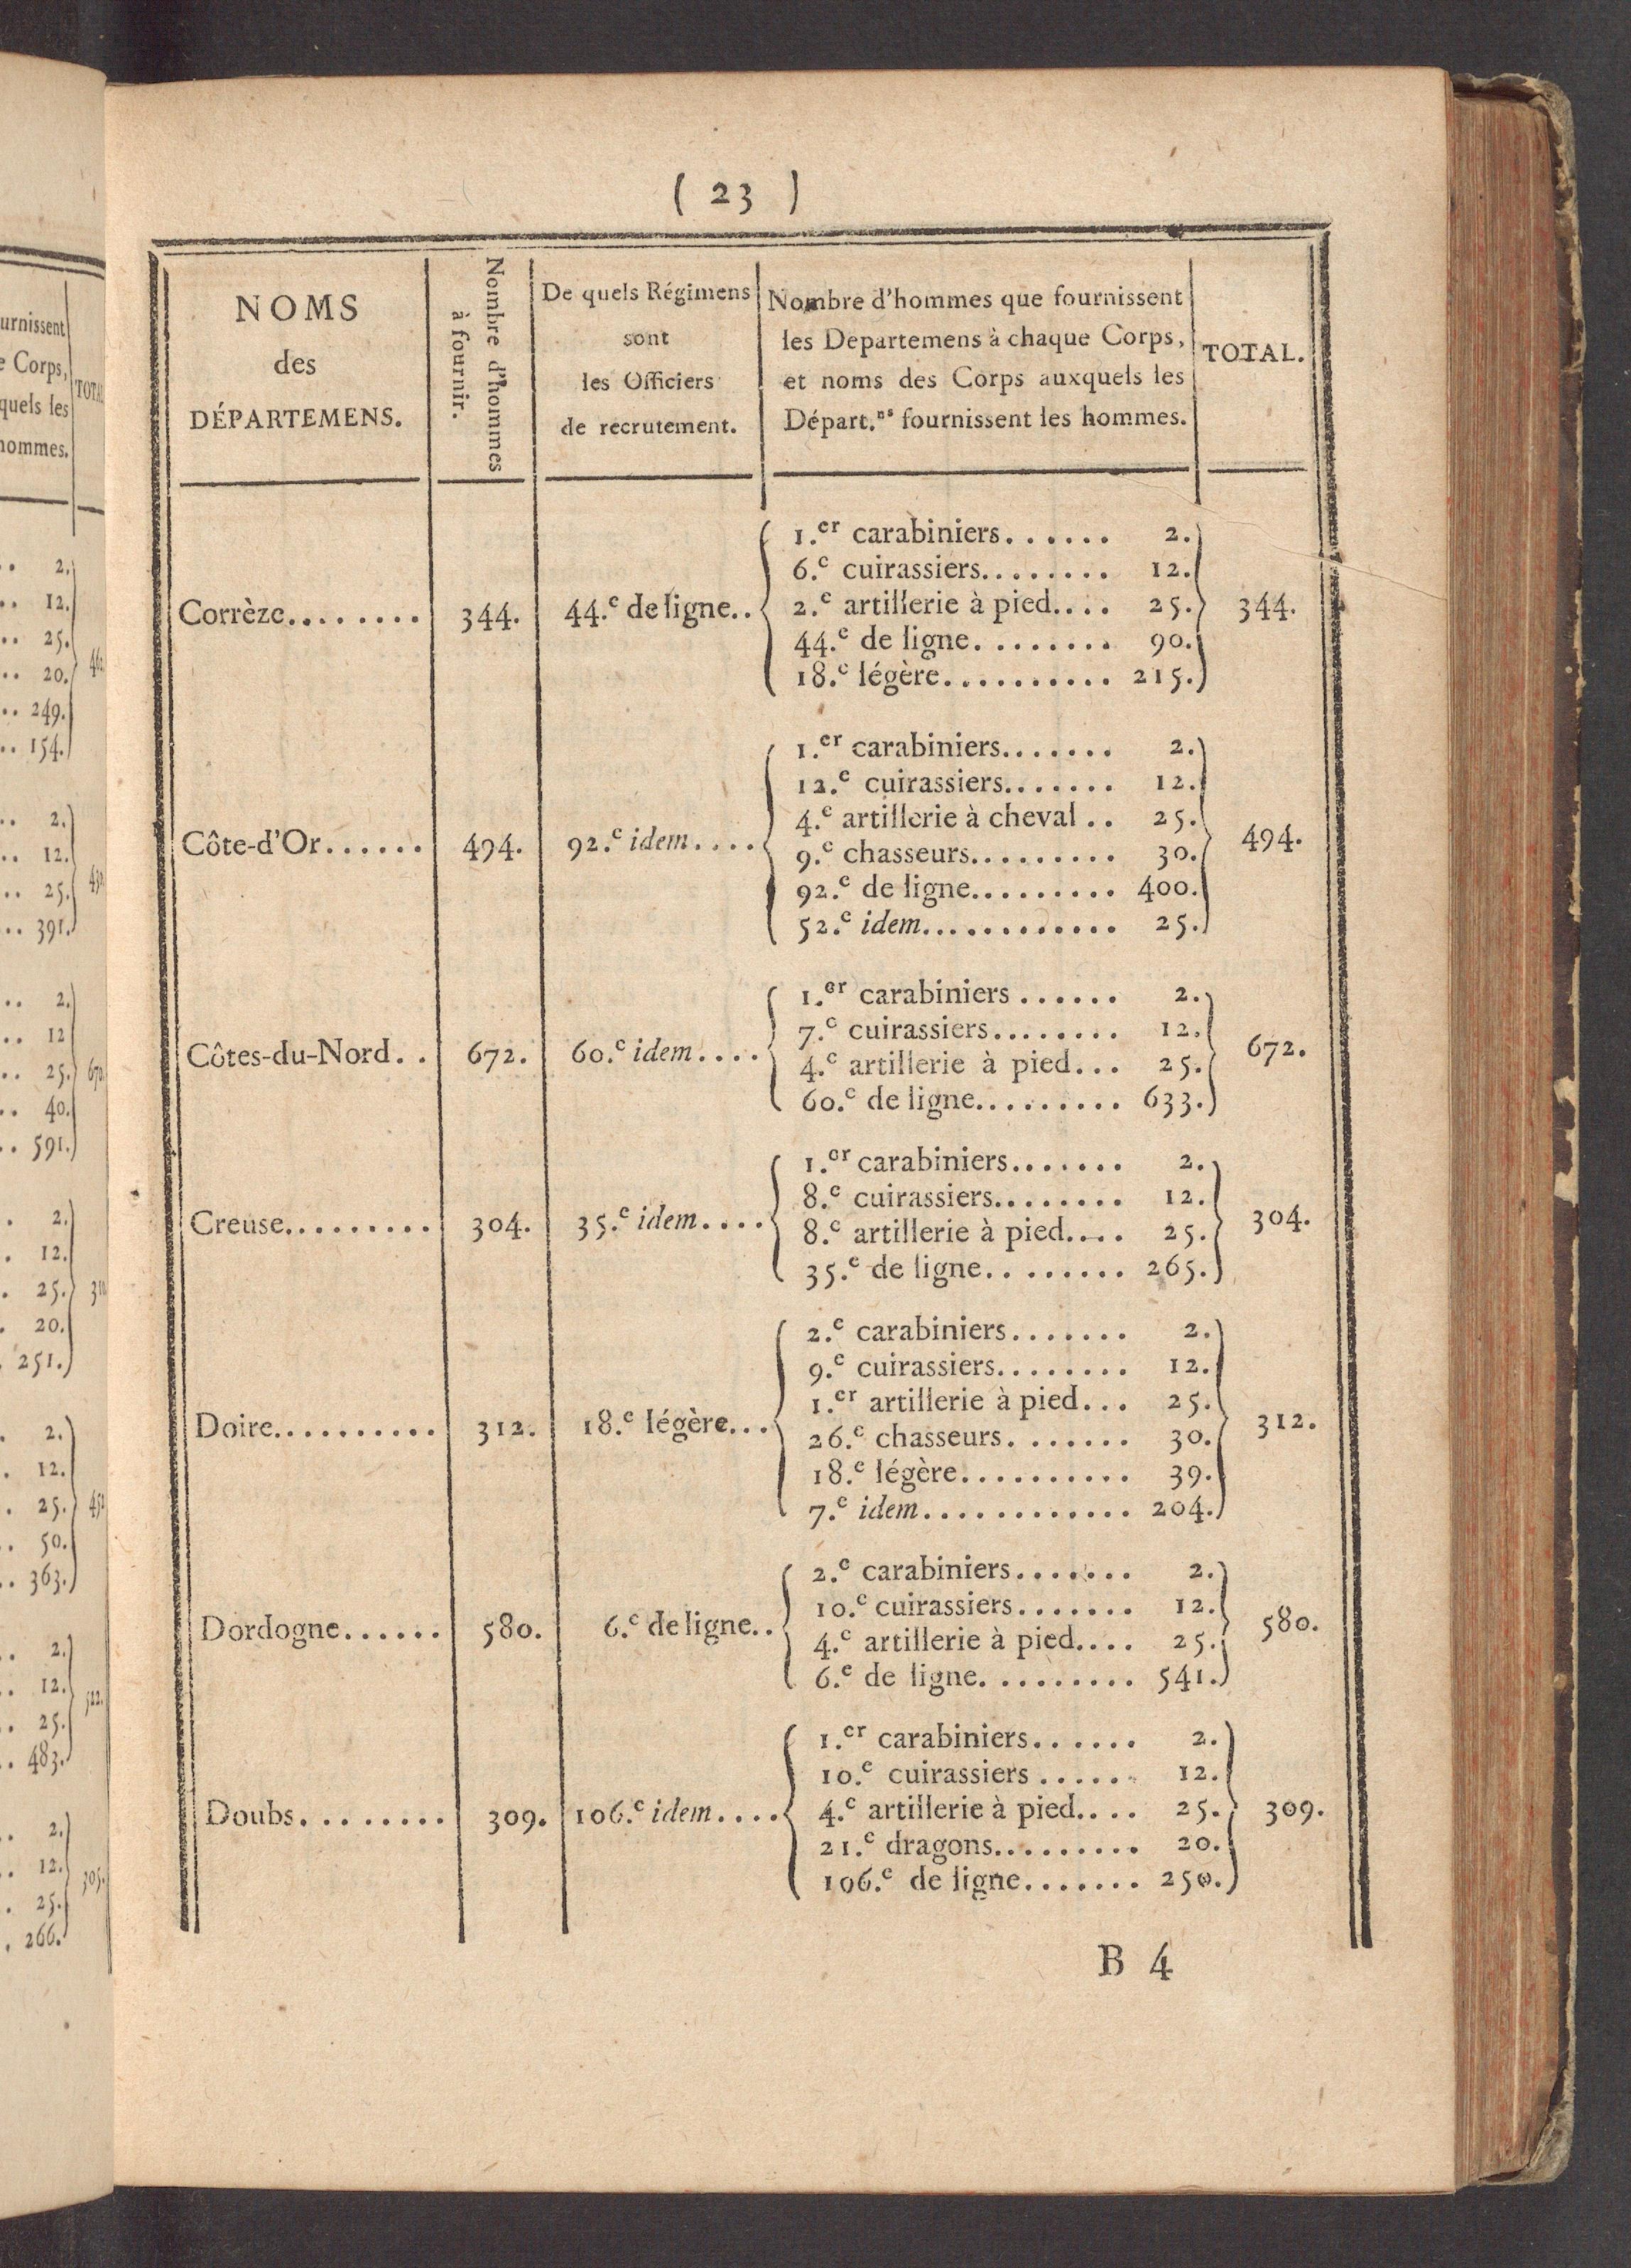 ( 23 )
NOMS
des
DÉPARTEMENS.
Nombre d'hommes
à fournir.
De quels Régimens
sont
les Officiers
de recrutement.
Nombre d'hommes que fournissent
les Departemens à chaque Corps,
et noms des Corps auxquels les
Départ.ns fournissent les hommes.
TOTAL.
Corrèze........ 344. 44.e de ligne..
1.er carabiniers...... 2.
6.e cuirassiers........ 12.
2.e artillerie à pied.... 25.
44.e de ligne........ 90.
18.e légère.......... 215.
344.
Côte-d'Or...... 494. 92.e idem....
1.er carabiniers....... 2.
12.e cuirassiers....... 12.
4.e artillerie à cheval.. 25.
9.e chasseurs......... 30.
92.e de ligne......... 400.
52.e idem............ 25.
494.
Côtes-du-Nord.. 672. 60.e idem....
1.er carabiniers...... 2.
7.e cuirassiers........ 12.
4.e artillerie à pied... 25.
60.e de ligne......... 633.
672.
Creuse......... 304. 35.e idem....
1.er carabiniers....... 2.
8.e cuirassiers........ 12.
8.e artillerie à pied.... 25.
35.e de ligne........ 265.
304.
Doire.......... 312. 18.e légère...
2.e carabiniers....... 2.
9.e cuirassiers........ 12.
1.er artillerie à pied... 25.
26.e chasseurs....... 30.
18.e légère.......... 39.
7.e idem............ 204.
312.
Dordogne...... 580. 6.e de ligne..
2.e carabiniers....... 2.
10.e cuirassiers....... 12.
4.e artillerie à pied.... 25.
6.e de ligne......... 541.
580.
Doubs........ 309. 106.e idem....
1.er carabiniers...... 2.
10.e cuirassiers...... 12.
4.e artillerie à pied.... 25.
21.e dragons......... 20.
106.e de ligne....... 250.
309.
B 4